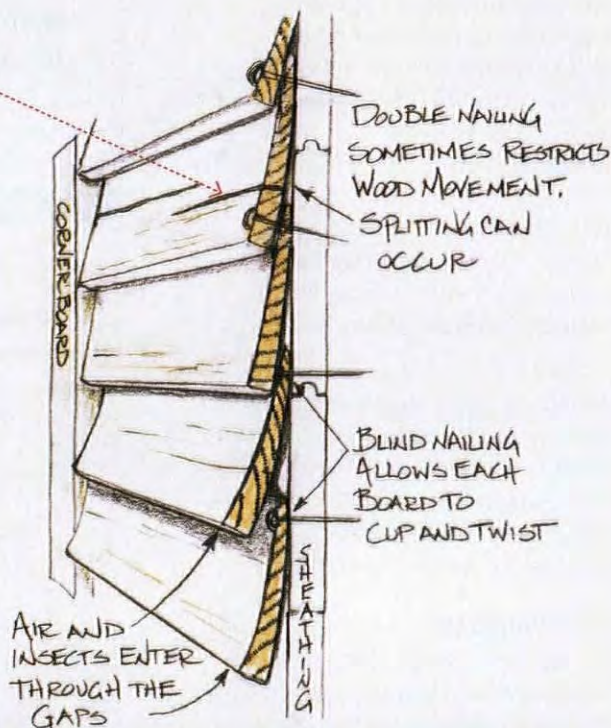 DOUBLE NAILING
SOMETIMES RESTRICTS
WOOD MOVEMENT.
SPLITTING CAN
OCCUR
CORNER BOARD
BLIND NAILING
ALLOWS EACH
BOARD TO
CUP AND TWIST
SHEATHING
AIR AND
INSECTS ENTER
THROUGH THE
GAPS